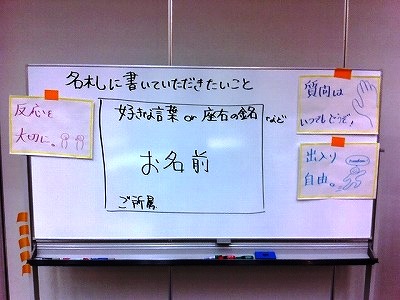 名札に書いていただきたいこと
好きな言葉 or 座右の銘 など
お名前
ご所属
反応を
大切に。
質問は
いつでもどうぞ!
出入り
自由。